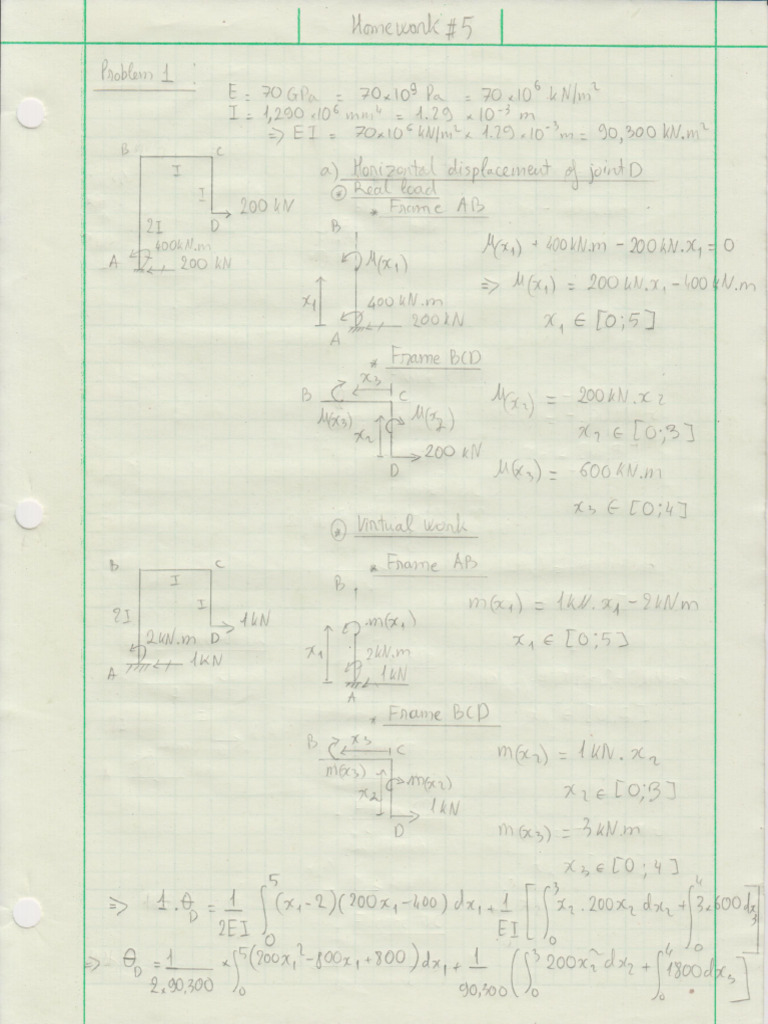 Homework #5
Problem 1 :
E = 70 GPa = 70×10⁹ Pa = 70×10⁶ kN/m²
I = 1,290×10⁶ mm⁴ = 1.29 × 10⁻³ m
=> EI = 70×10⁶ kN/m² × 1.29×10⁻³ m = 90,300 kN.m²
B C
I
I
200 kN
D
2I
400kN.m
A 200 kN
a) Horizontal displacement of joint D
* Real load
* Frame AB
B
M(x₁)
x₁
400 kN.m
200kN
A
M(x₁) + 400kN.m - 200kN.x₁ = 0
=> M(x₁) = 200 kN.x₁ - 400 kN.m
x₁ ∈ [0;5]
* Frame BCD
x₃
B C
M(x₃) M(x₂)
x₂
200 kN
D
M(x₂) = 200kN.x₂
x₂ ∈ [0;3]
M(x₃) = 600 kN.m
x₃ ∈ [0;4]
* Virtual work
* Frame AB
B C
I
2I I
1kN
2kN.m D
1kN
A
B
m(x₁)
x₁
2kN.m
1kN
A
m(x₁) = 1kN.x₁ - 2kNm
x₁ ∈ [0;5]
* Frame BCD
B x₃ C
m(x₃) m(x₂)
x₂
1kN
D
m(x₂) = 1kN.x₂
x₂ ∈ [0;3]
m(x₃) = 3kN.m
x₃ ∈ [0;4]
=> 1.θ_D = 1/2EI ∫₀⁵ (x₁-2)(200x₁-400) dx₁ + 1/EI [∫₀³ x₂.200x₂ dx₂ + ∫₀⁴ 3×600 dx₃]
=> θ_D = 1/2.90,300 × ∫₀⁵ (200x₁² - 800x₁ + 800) dx₁ + 1/90,300 (∫₀³ 200x₂² dx₂ + ∫₀⁴ 1800 dx₃]